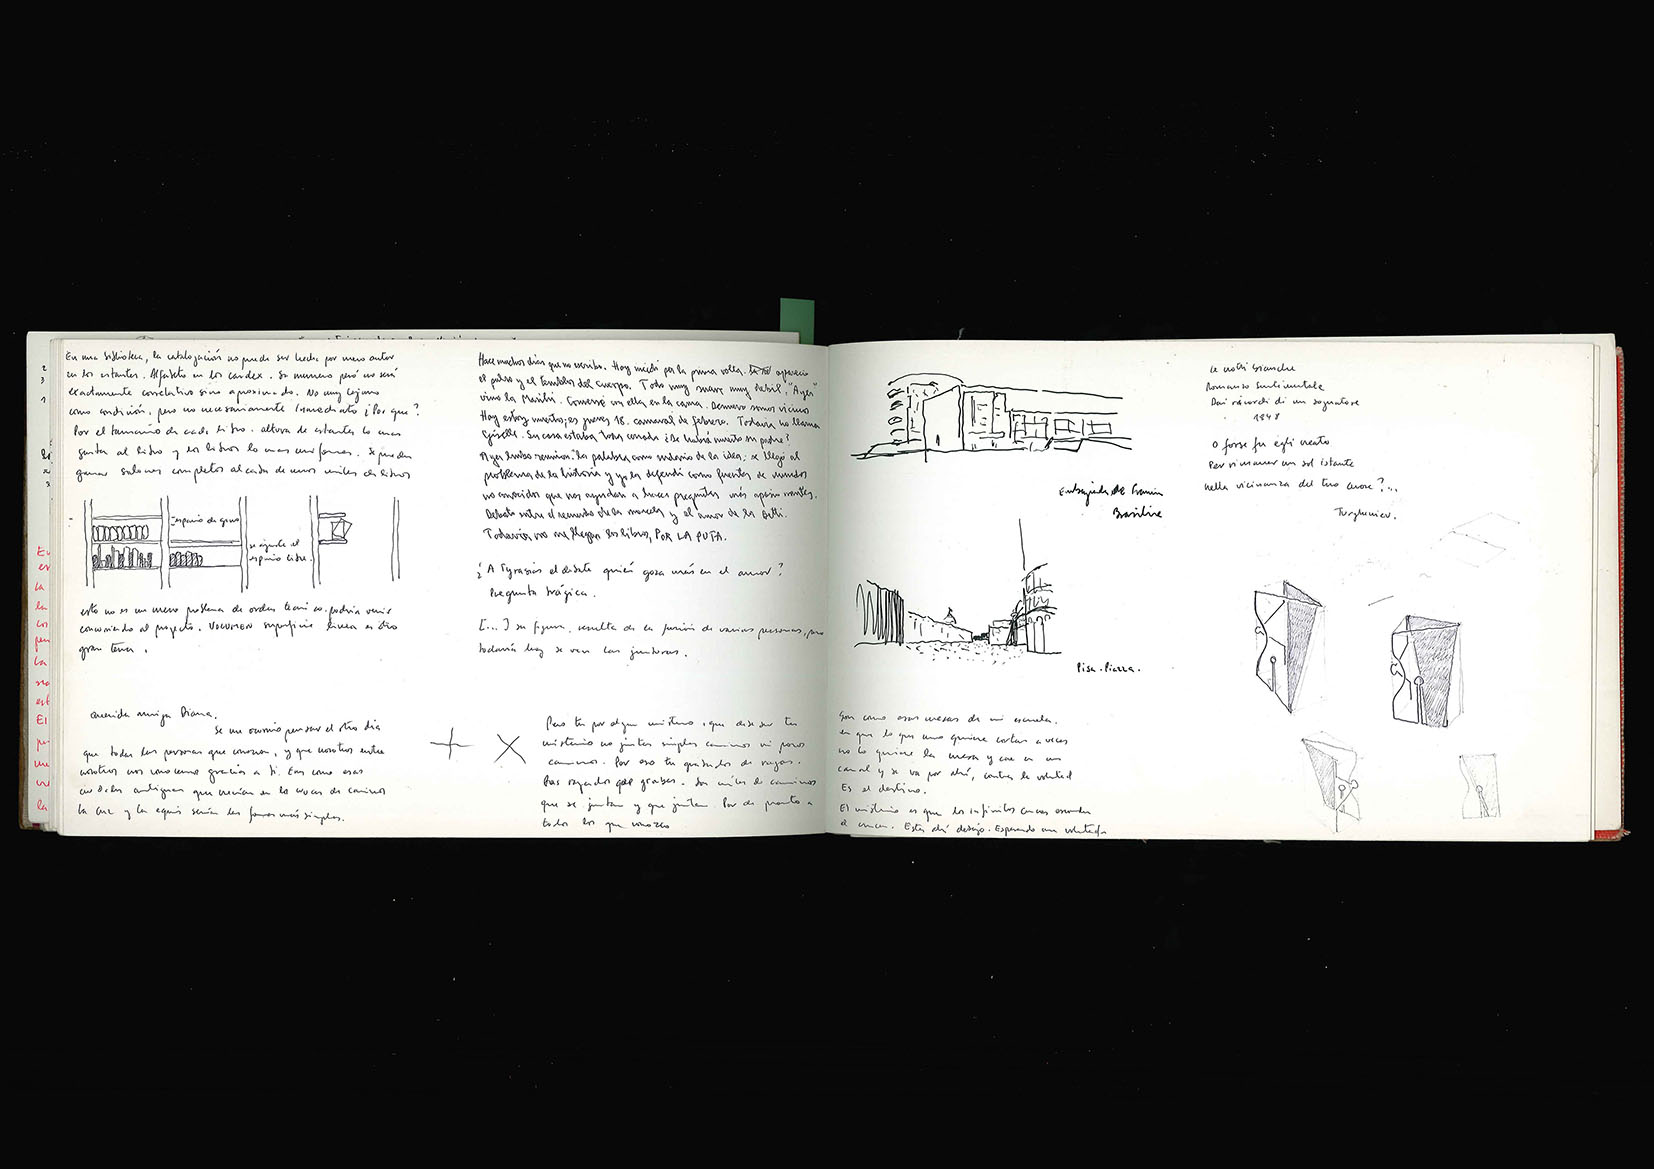 En una biblioteca, la catalogación no puede ser hecha por mero autor
en los estantes. Alfabeto en los cardex. Su numero però no será
exactamente correlativo sino aproximado. No muy lejano
como condición, pero no necesariamente inmediato ¿Por que?
Por el tamaño de cada libro. altura de estantes lo mas
justa al libro y los libros lo mas uniformes. Se pueden
ganar salones completos al cabo de unos miles de libros
espacio de
se ajusta el
espacio libre.
esto no es un mero problema de orden tecnico. podria venir
concurriendo al proyecto. VOLUMEN superficie linea es otro
gran tema.
querida amiga Diana.
Se me ocurrio pensar el otro dia
que todas las personas que conozco, y que nosotros entre
nosotros nos conocemos gracias a ti. Eres como esas
ciudades antiguas que nacian en los cruces de caminos
la cruz y la equis serian las formas más simples.
Hace muchos dias que no escribo. Hoy medi por la prima volta. apareció
el pulso y el temblor del cuerpo. Todo muy suave, muy debil. "Ayer"
vino la Marilú. Conversé con ella en la cama. Denuevo somos vicinos
Hoy estoy muerto; es jueves 18. carnaval de febrero. Todavia no llama
Giselle. Su casa estaba toda cerrada ¿Se habrá muerto su padre?
Ayer hubo reunion: la palabra como sudario de la idea; se llegó al
problema de la historia y yo la defendí como fuentes de mundos
no conocidos que nos ayudan a hacer preguntas más apasionantes.
Debate entre el recuerdo de la morcela y el amor de la Betti.
Todavia no me llegan los libros, POR LA PUTA.
¿A Tyrasias el debate quién goza más en el amor?
Pregunta trágica.
[...] su figura, resulta de la fusión de varias personas, pero
todavia hoy se ven las junturas.
Pero tu por algun misterio, que debe ser tu
misterio no juntas simples caminos ni pocos
caminos. Por eso tu grabados de rayas.
Las rayados que grabas. Son miles de caminos
que se juntan y que juntan. Por de pronto a
todos los que conozco
Embajada de Francia
Brasilia
Pisa. Piazza.
Son como esas mesas de mi escuela.
en que lo que uno quiere cortar a veces
no lo quiere la mesa y cae en un
canal y se va por ahí, contra la voluntad
Es el destino.
El misterio es que los infinitos cruces
Esta ahí debajo. Esperando
Le notti bianche
Romanzo sentimentale
Dai ricordi di un sognatore
1848
O forse fu egli creato
Per rimanere un sol istante
nella vicinanza del tuo cuore?...
Turgheniev.